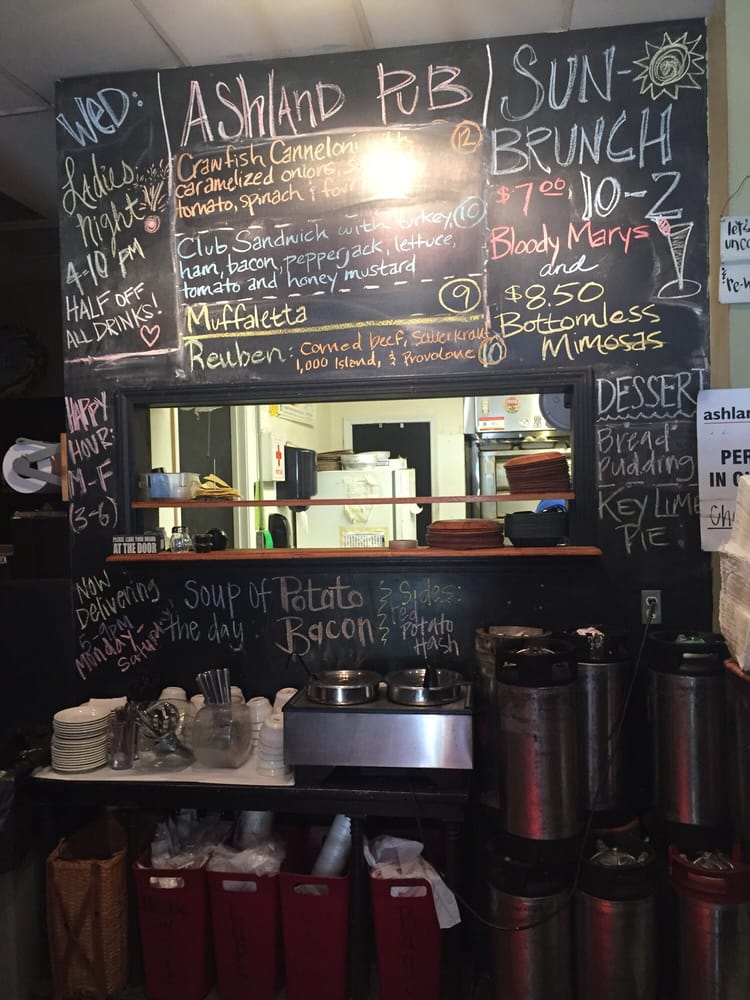 WED:
Ladies
Night
4-10 PM
HALF OFF
ALL DRINKS!
ASHLAND PUB
Crawfish Canneloni
12
caramelized onions,
tomato, spinach & four
Club Sandwich with turkey, 10
ham, bacon, pepperjack, lettuce,
tomato and honey mustard
Muffaletta 9
Reuben: Corned beef, Sauerkraut,
1,000 Island, & Provolone 10
SUN-
BRUNCH
$7.00 10-2
Bloody Marys
and
$8.50
Bottomless
Mimosas
HAPPY
HOUR:
M-F
(3-6)
DESSERT
Bread
Pudding
KEY LIME
PIE
AT THE DOOR
NOW
Delivering
5-9pm
Monday-
Saturday
Soup of
the day:
Potato
Bacon
& Sides:
red
Potato
Hash
ashlan
PER
IN C